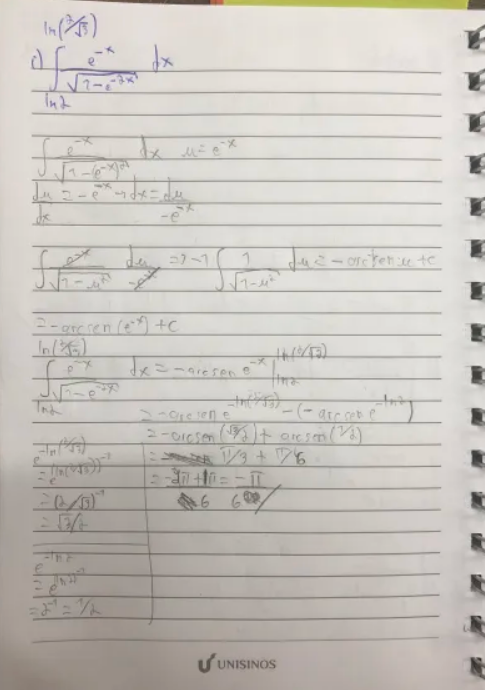 ln(2/√3)
c) ∫ e^-x / √(1-e^-2x) dx
ln2
∫ e^-x / √(1-(e^-x)²) dx u=e^-x
du/dx = -e^-x → dx = du / -e^-x
∫ e^-x / √(1-u²) du / -e^-x = -1 ∫ 1 / √(1-u²) du = -arcsen u + c
= -arcsen (e^-x) + c
ln(2/√3)
∫ e^-x / √(1-e^-2x) dx = -arcsen e^-x |ln(2/√3)
ln2 ln2
= -arcsen e^-ln(2/√3) - (-arcsen e^-ln2)
= -arcsen (√3/2) + arcsen (1/2)
= π/3 + π/6
= -2π + 1π = -π
6 6
e^-ln(2/√3)
= e^(ln(2/√3))^-1
= (2/√3)^-1
= √3/2
e^-ln2
= e^(ln2)^-1
= 2^-1 = 1/2
UNISINOS